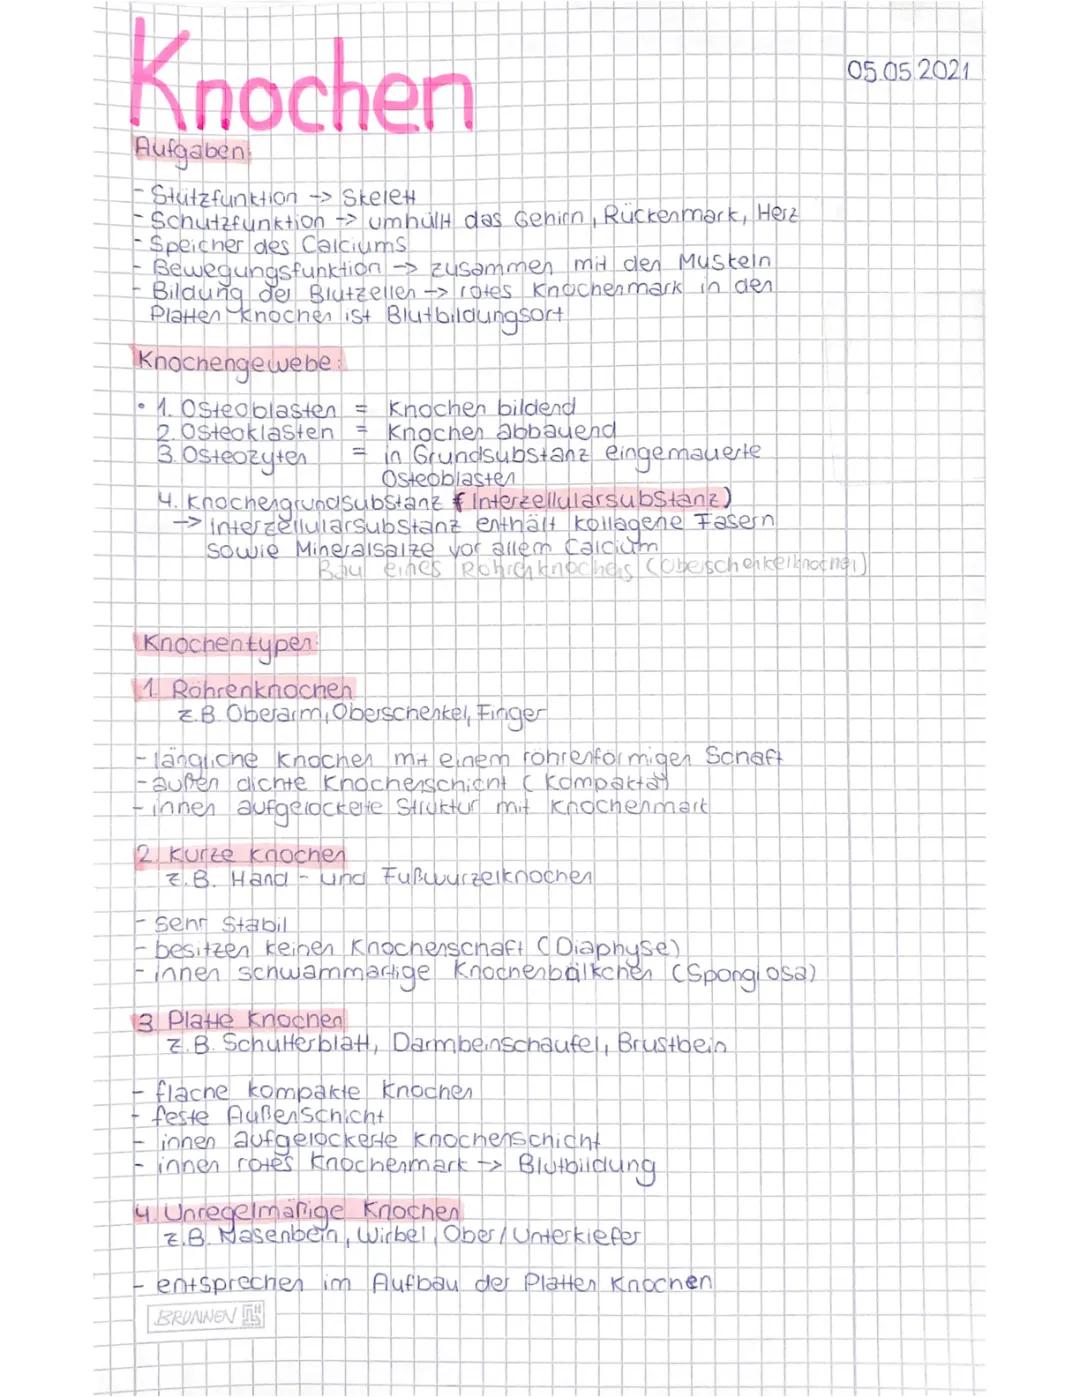 Knochen
05.05.2021
Aufgaben:
- Stützfunktion -> Skelett
- Schutzfunktion -> umhüllt das Gehirn, Rückenmark, Herz
- Speicher des Calciums
- Bewegungsfunktion -> zusammen mit den Muskeln
- Bildung der Blutzellen -> rotes Knochenmark in den
Platten Knochen ist Blutbildungsort
Knochengewebe:
• 1. Osteoblasten = Knochen bildend
2. Osteoklasten = Knochen abbauend
3. Osteozyten = in Grundsubstanz eingemauerte
Osteoblasten
4. Knochengrundsubstanz (Interzellularsubstanz)
-> Interzellularsubstanz enthält kollagene Fasern
sowie Mineralsalze vor allem Calcium
Bau eines Röhrenknochens (Oberschenkelknochen)
Knochentypen:
1. Röhrenknochen
z.B. Oberarm, Oberschenkel, Finger
- längliche Knochen mit einem röhrenförmigen Schaft
- außen dichte Knochenschicht (Kompakta)
- innen aufgelockerte Struktur mit Knochenmark
2. Kurze Knochen
z.B. Hand- und Fußwurzelknochen
- sehr stabil
- besitzen keinen Knochenschaft (Diaphyse)
- innen schwammartige Knochenbälkchen (Spongiosa)
3. Platte Knochen
z.B. Schulterblatt, Darmbeinschaufel, Brustbein
- flache kompakte Knochen
- feste Außenschicht
- innen aufgelockerte Knochenschicht
- innen rotes Knochenmark -> Blutbildung
4. Unregelmäßige Knochen
z.B. Nasenbein, Wirbel, Ober/Unterkiefer
- entsprechen im Aufbau der Platten Knochen
BRUNNEN